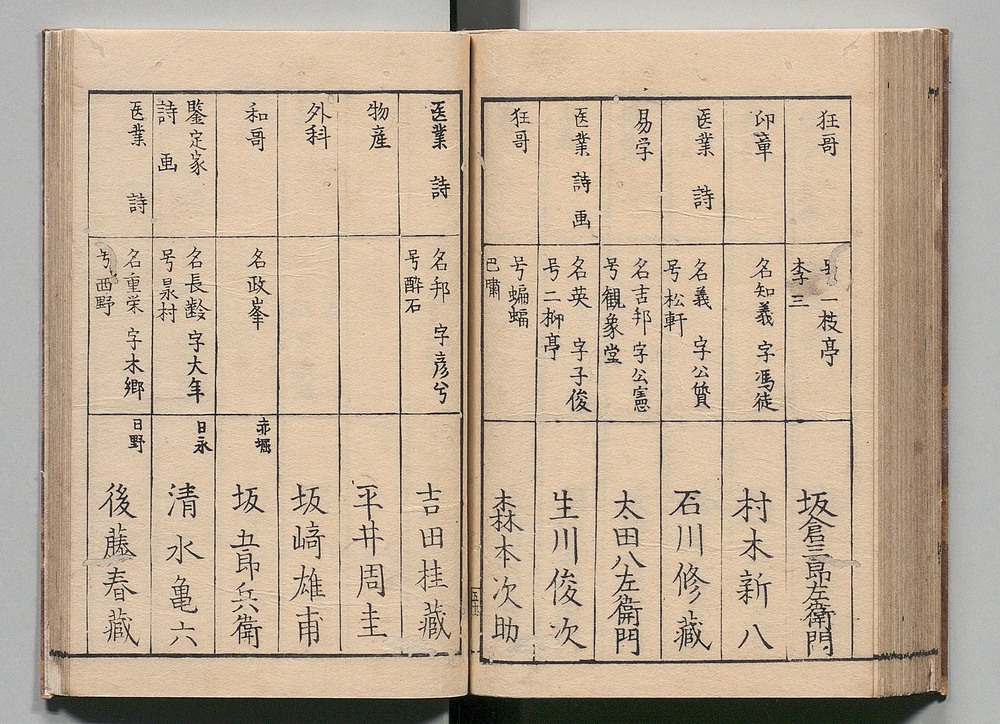 狂哥
号一枝亭
李三
坂倉三郎左衛門
印章
名知義 字馮徒
村木新八
医業 詩
名義 字公質
号松軒
石川修蔵
易学
名吉邦 字公憲
号観象堂
太田八左衛門
医業 詩 画
名英 字子俊
号二柳亭
生川俊次
狂哥
号蝙蝠
巴嘯
森本次助
医業 詩
名邦 字彦兮
号酔石
吉田桂蔵
物産
平井周圭
外科
坂﨑雄甫
和哥
名政峯
赤堀
坂五郎兵衛
鑒定家
詩 画
名長齢 字大年
号泉村
日永
清水亀六
医業 詩
名重栄 字木郷
号西野
日野
後藤春蔵